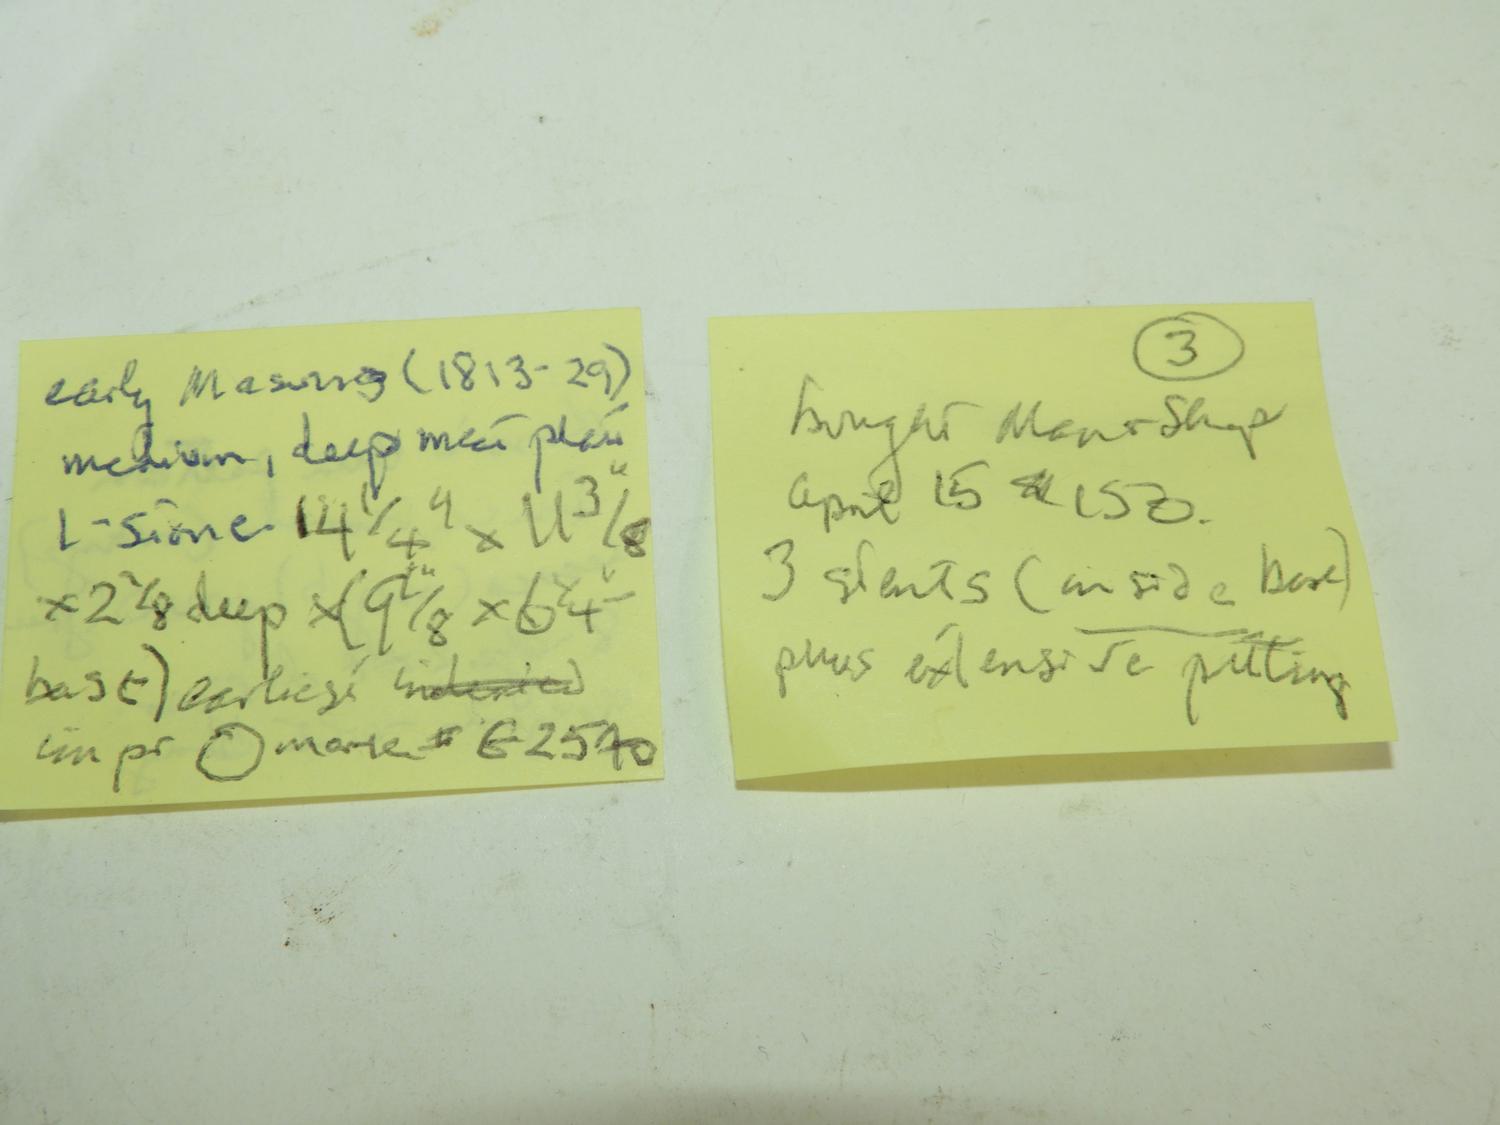 early Masons (1813-29)
medium, deep meat plate
I-stone 14 1/4" x 11 3/8"
x 2 2/8 deep x (9 /8 x 6 /4"
base) earliest indented
impr O mark # 2570
3
bought Manor Shop
April 15 150.
3 stents (inside base)
plus extensive pitting